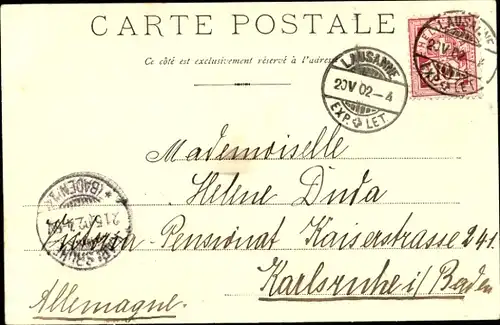 CARTE POSTALE
Ce côté est exclusivement réservé à l'adresse
LAUSANNE
20 V 02-4
EXP. LET.
LAUSANNE
20 V 02
EXP. LET.
Mademoiselle
Helene Duda
Pensionat Kaiserstrasse 241
Karlsruhe i/ Baden
Allemagne.
(BADEN)